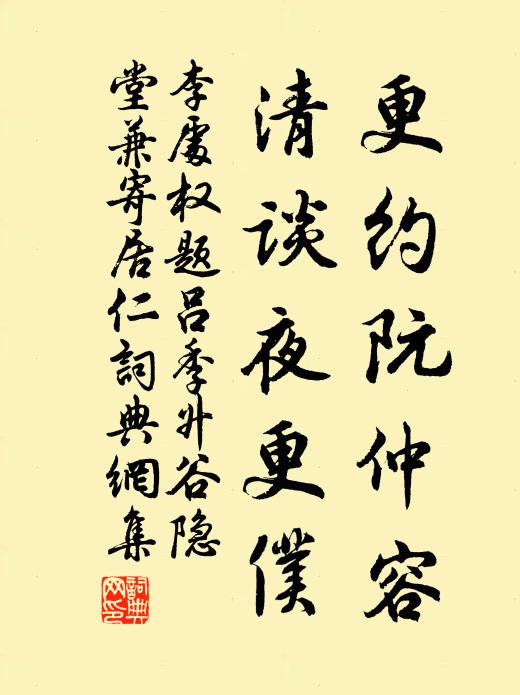 更约阮仲容
清谈夜更僕
李處权题吕季升谷隐
堂兼寄居仁詞典網集
詞典网印